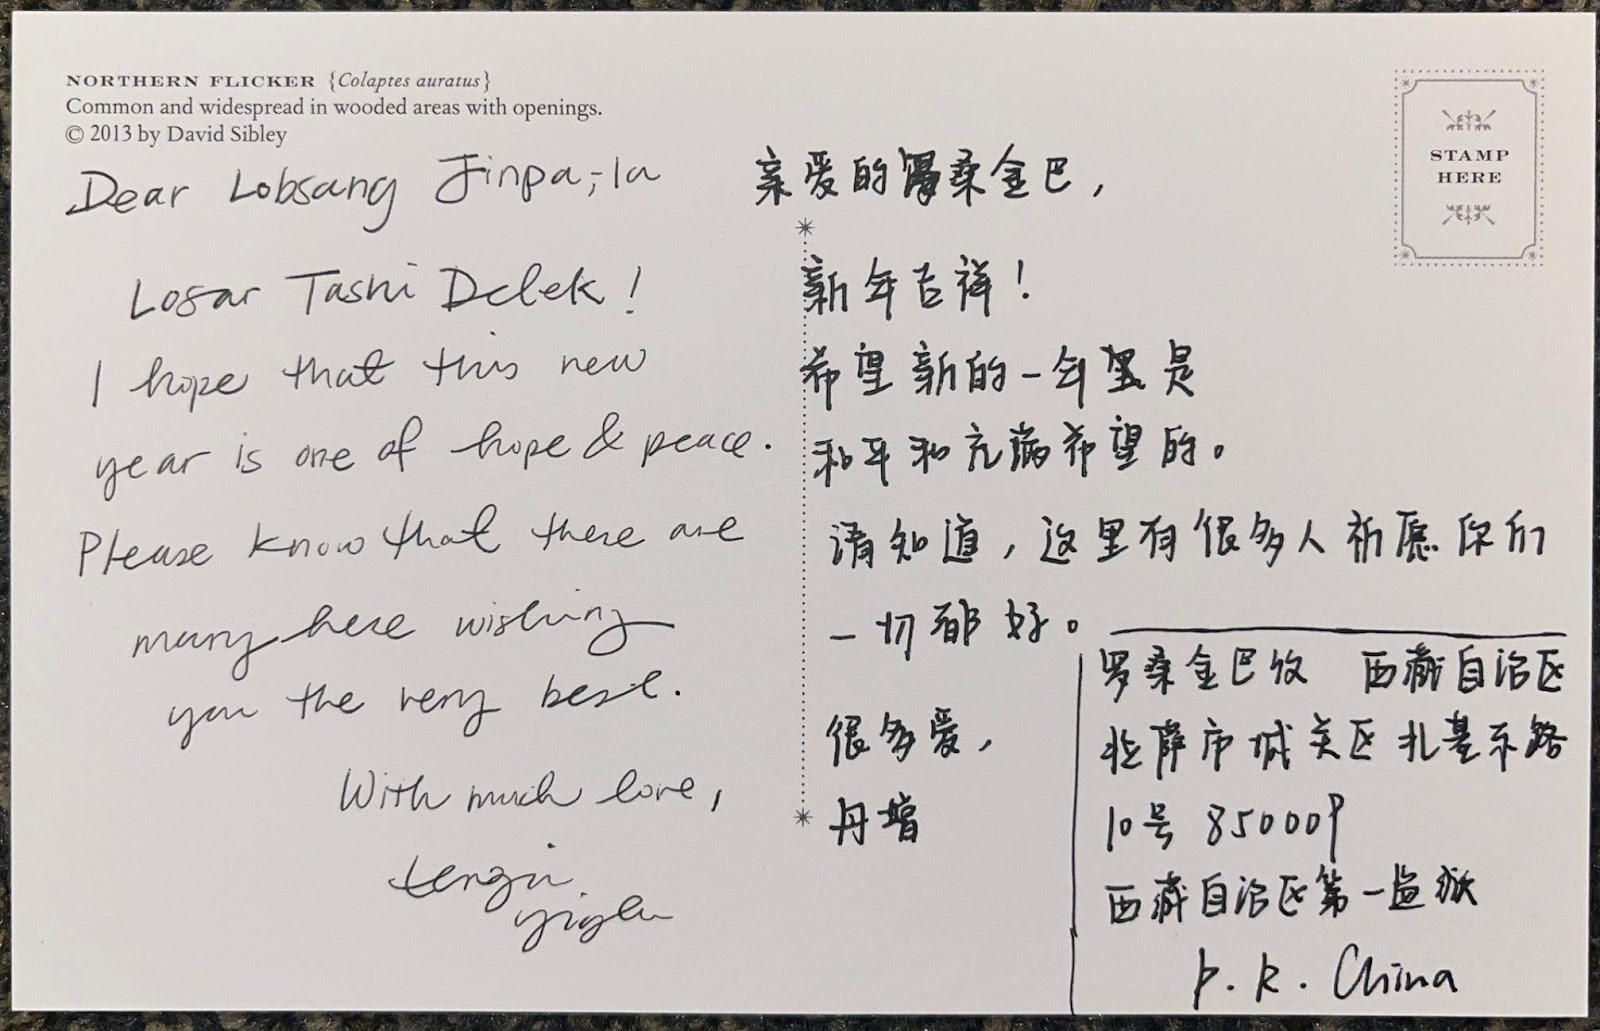 NORTHERN FLICKER {Colaptes auratus}
Common and widespread in wooded areas with openings.
© 2013 by David Sibley
Dear Lobsang Jinpa,-la
Losar Tashi Delek!
I hope that this new
year is one of hope & peace.
Please know that there are
many here wishing
you the very best.
With much love,
tenzin
亲爱的罗桑金巴，
新年吉祥！
希望新的一年里是
和平和充满希望的。
请知道，这里有很多人祈愿你们
一切都好。
很多爱，
丹增
STAMP
HERE
罗桑金巴收 西藏自治区
拉萨市城关区扎基东路
10号 850009
西藏自治区第一监狱
P. R. China